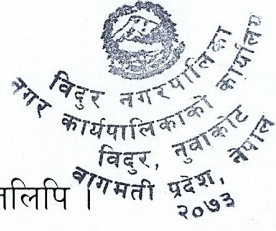 विदुर नगरपालिका
नगर कार्यपालिकाको कार्यालय
विदुर, नुवाकोट
बागमती प्रदेश, नेपाल
२०७३
लिपि ।